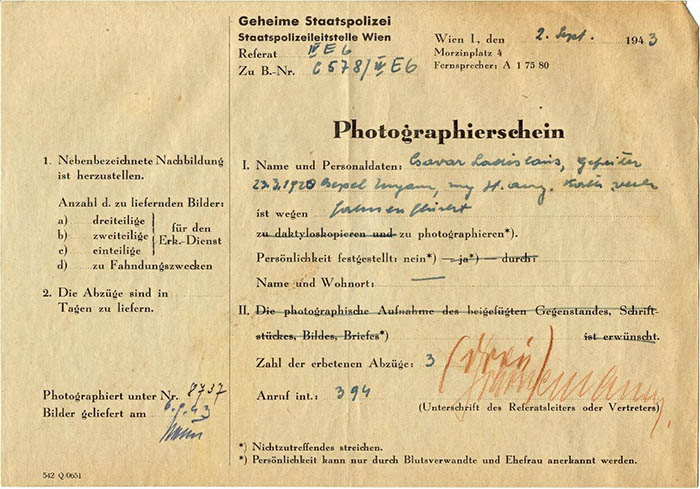 Geheime Staatspolizei
Staatspolizeileitstelle Wien
Referat IV E 6
Zu B.-Nr. C 578/IV E 6
Wien I., den 2. Sept. 1943
Morzinplatz 4
Fernsprecher: A 1 75 80
Photographierschein
1. Nebenbezeichnete Nachbildung
ist herzustellen.
Anzahl d. zu liefernden Bilder:
a) dreiteilige
b) zweiteilige
c) einteilige
für den
Erk.-Dienst
d) zu Fahndungszwecken
2. Die Abzüge sind in
Tagen zu liefern.
Photographiert unter Nr. 8737
Bilder geliefert am 6.9.43
I. Name und Personaldaten: Csavar Ladislaus, Gefreiter
ist wegen Fahnenflucht
zu daktyloskopieren und zu photographieren*).
Persönlichkeit festgestellt: nein*) — ja*) — durch:
Name und Wohnort: —
II. Die photographische Aufnahme des beigefügten Gegenstandes, Schrift-
stückes, Bildes, Briefes*) ist erwünscht.
Zahl der erbetenen Abzüge: 3 (drei)
Anruf int.: 394
(Unterschrift des Referatsleiters oder Vertreters)
*) Nichtzutreffendes streichen.
*) Persönlichkeit kann nur durch Blutsverwandte und Ehefrau anerkannt werden.
542 Q/0651